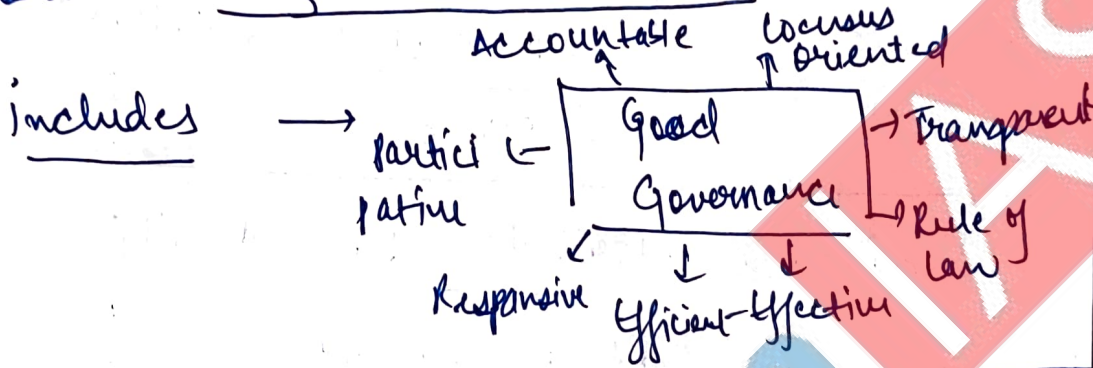 Accountable
Cocusus
oriented
includes → Partici
pative
Good
Governance
→ Transparent
→ Rule of
Law
Responsive
Efficient-Effective
IA